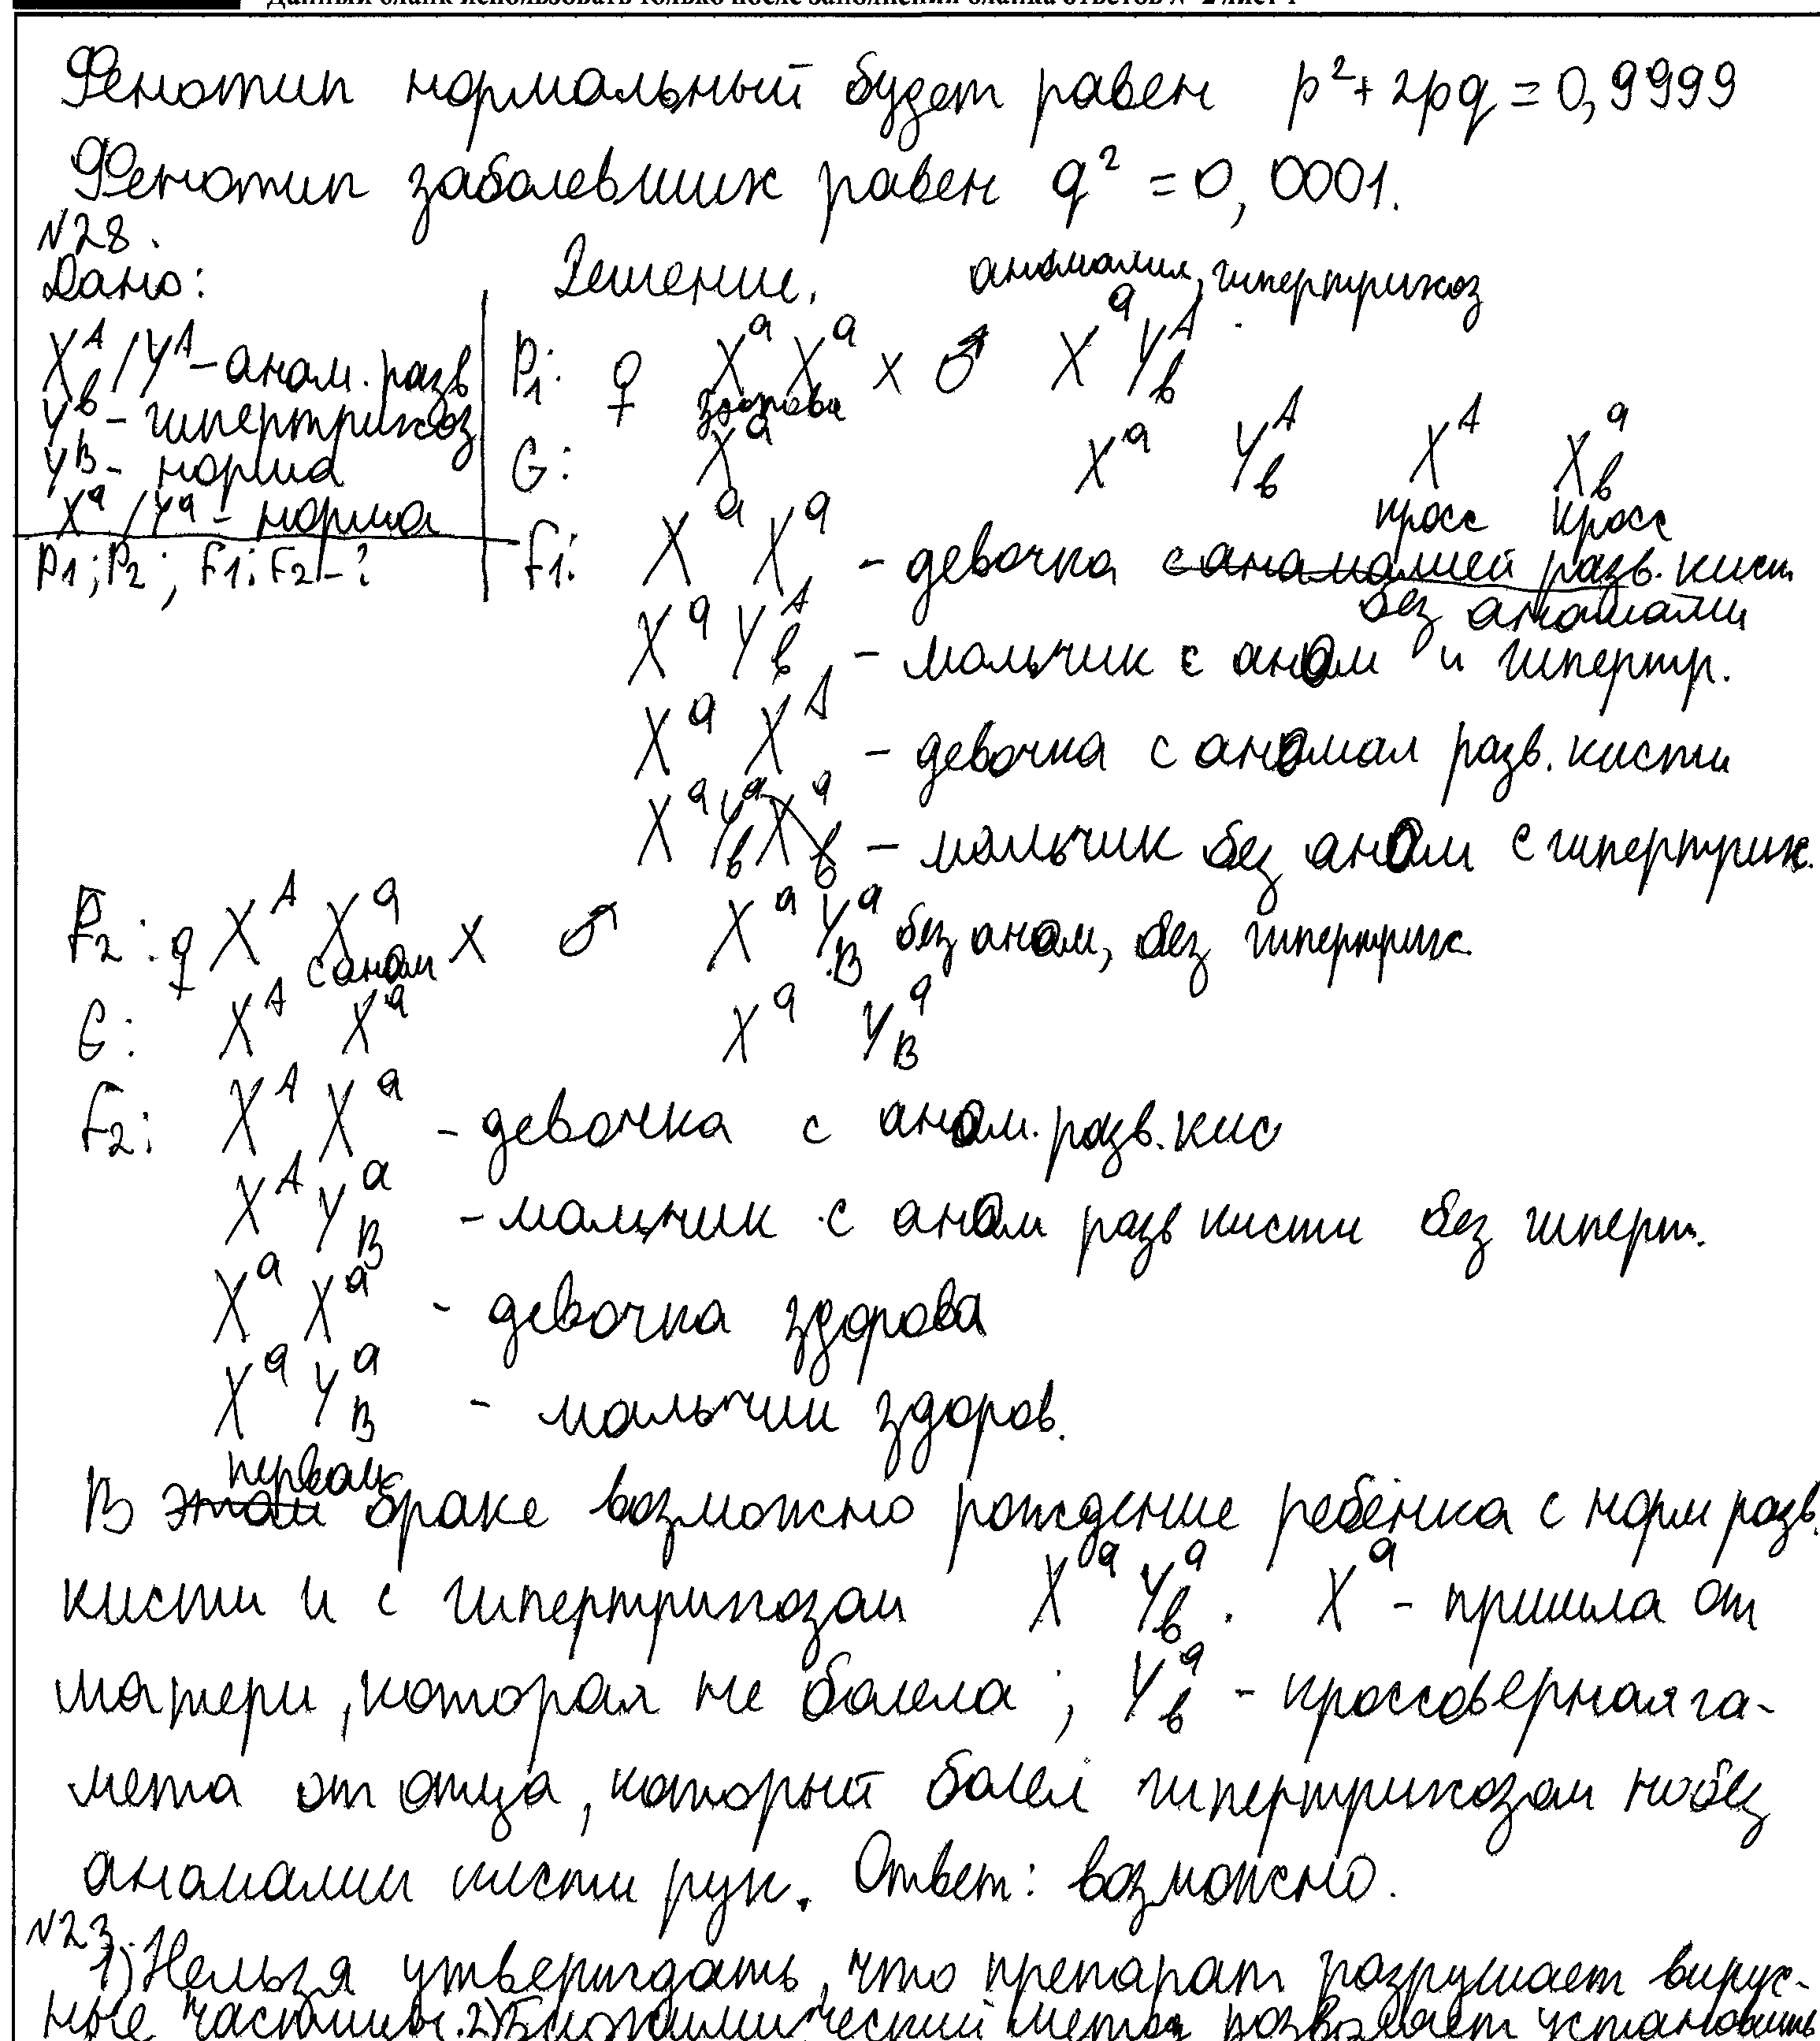 Данный бланк использовать только после заполнения бланка ответов № 2 лист 1
Фенотип нормальный будет равен p²+2pq=0,9999
Фенотип заболевших равен q²=0,0001.
N28.
Дано: Решение. аномалия, гипертрихоз
X^A/Y^A - аном. разв
Y^b - гипертрихоз
Y^B - норма
X^a/Y^a - норма
P1; P2; F1; F2 - ?
P1: ♀ X^a X^a x ♂ X^a Y^A_b
здорова
G: X^a X^a Y^A_b X^A X^a_b
кросс кросс
F1: X^a X^a - девочка с аномалией разв. кист
без аномалии
X^a Y^A_b - мальчик с аном и гипертр.
X^a X^A - девочка с аномал разв. кисти
X^a Y^a_b X^a_b - мальчик без аном с гипертрих.
F2: ♀ X^A X^a x ♂ X^a Y^a_B без аном, без гипертрих.
с аном
G: X^A X^a X^a Y^a_B
F2: X^A X^a - девочка с аном. разв. кис
X^A Y^a_B - мальчик с аном разв кисти без гиперт.
X^a X^a - девочка здорова
X^a Y^a_B - мальчик здоров.
первом
В этом браке возможно рождение ребёнка с норм разв.
кисти и с гипертрихозом X^a Y^a_b. X^a - пришла от
матери, которая не болела; Y^a_b - кроссоверная га-
мета от отца, который болел гипертрихозом но без
аномалии кисти рук. Ответ: возможно.
N23.
1) Нельзя утверждать, что препарат разрушает вирус-
ные частицы. 2) Биохимический метод позволяет установить